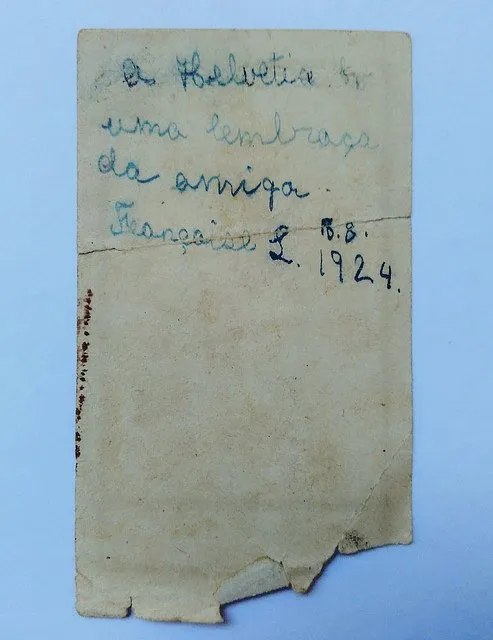 a Helvetia
uma lembraça
da amiga.
Françoise L. 1924.